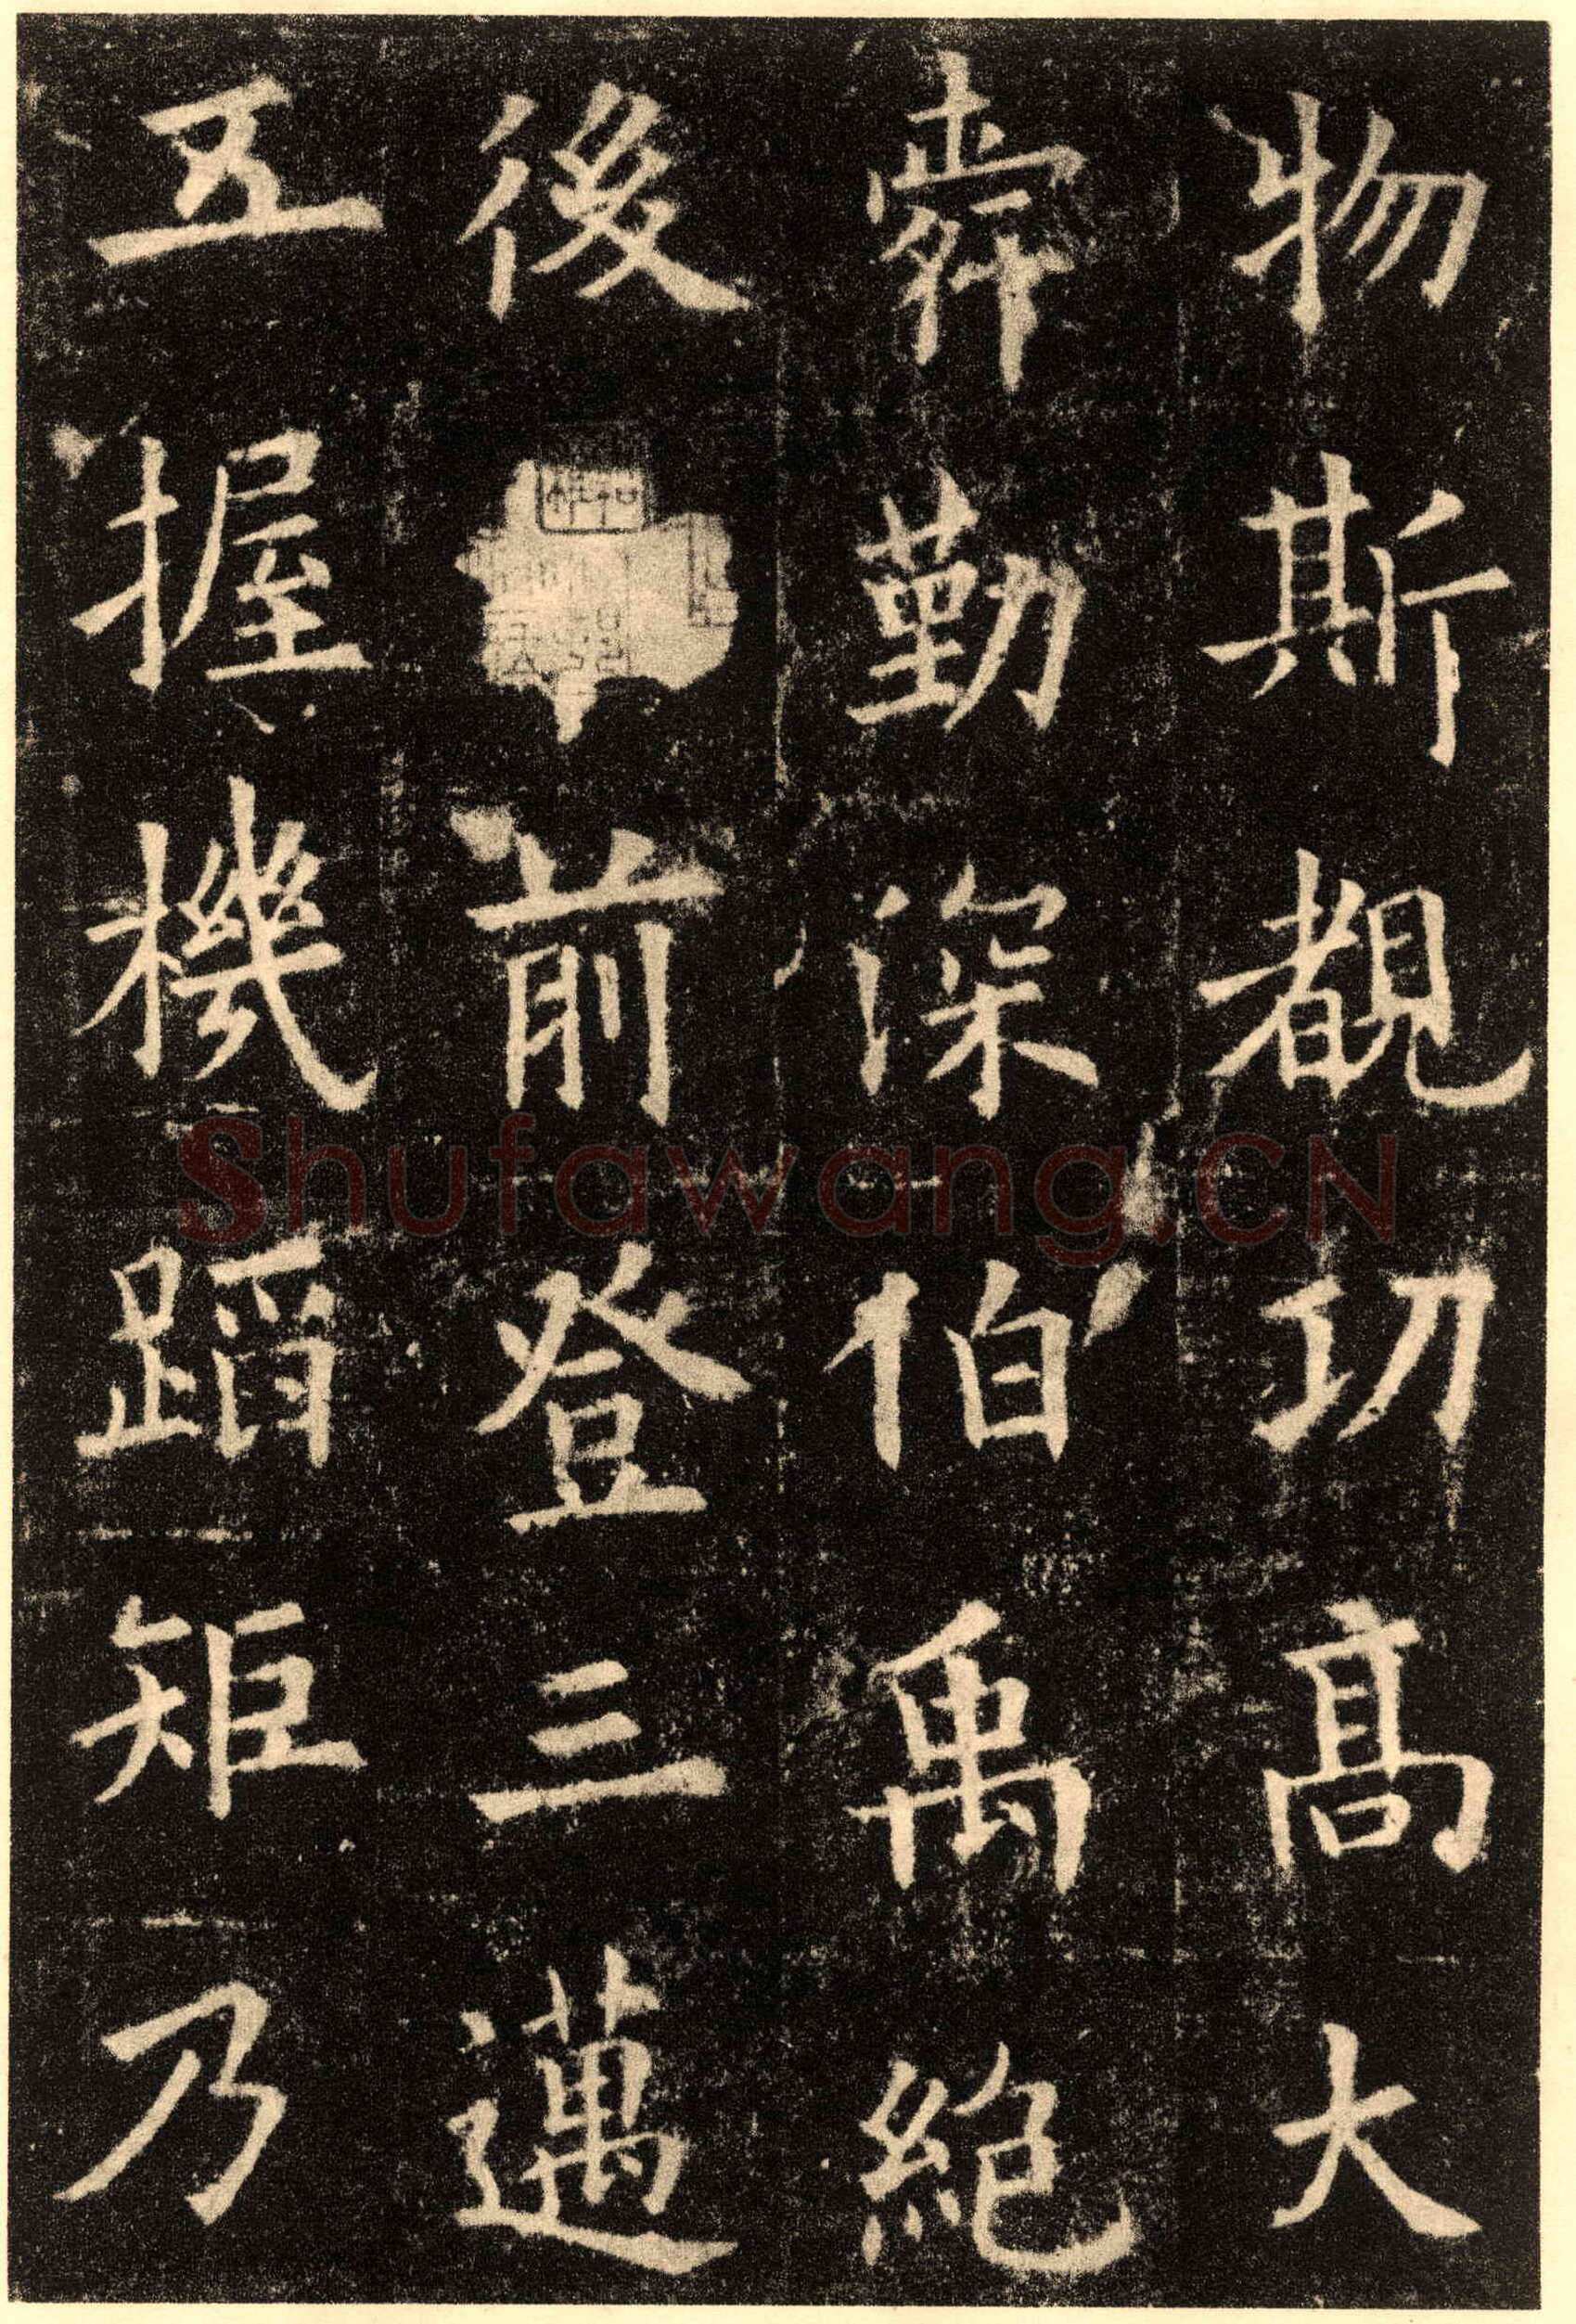 物斯覩功髙大
舜勤深伯禹絕
後前登三邁
五握機蹈矩乃
Shufawang.CN